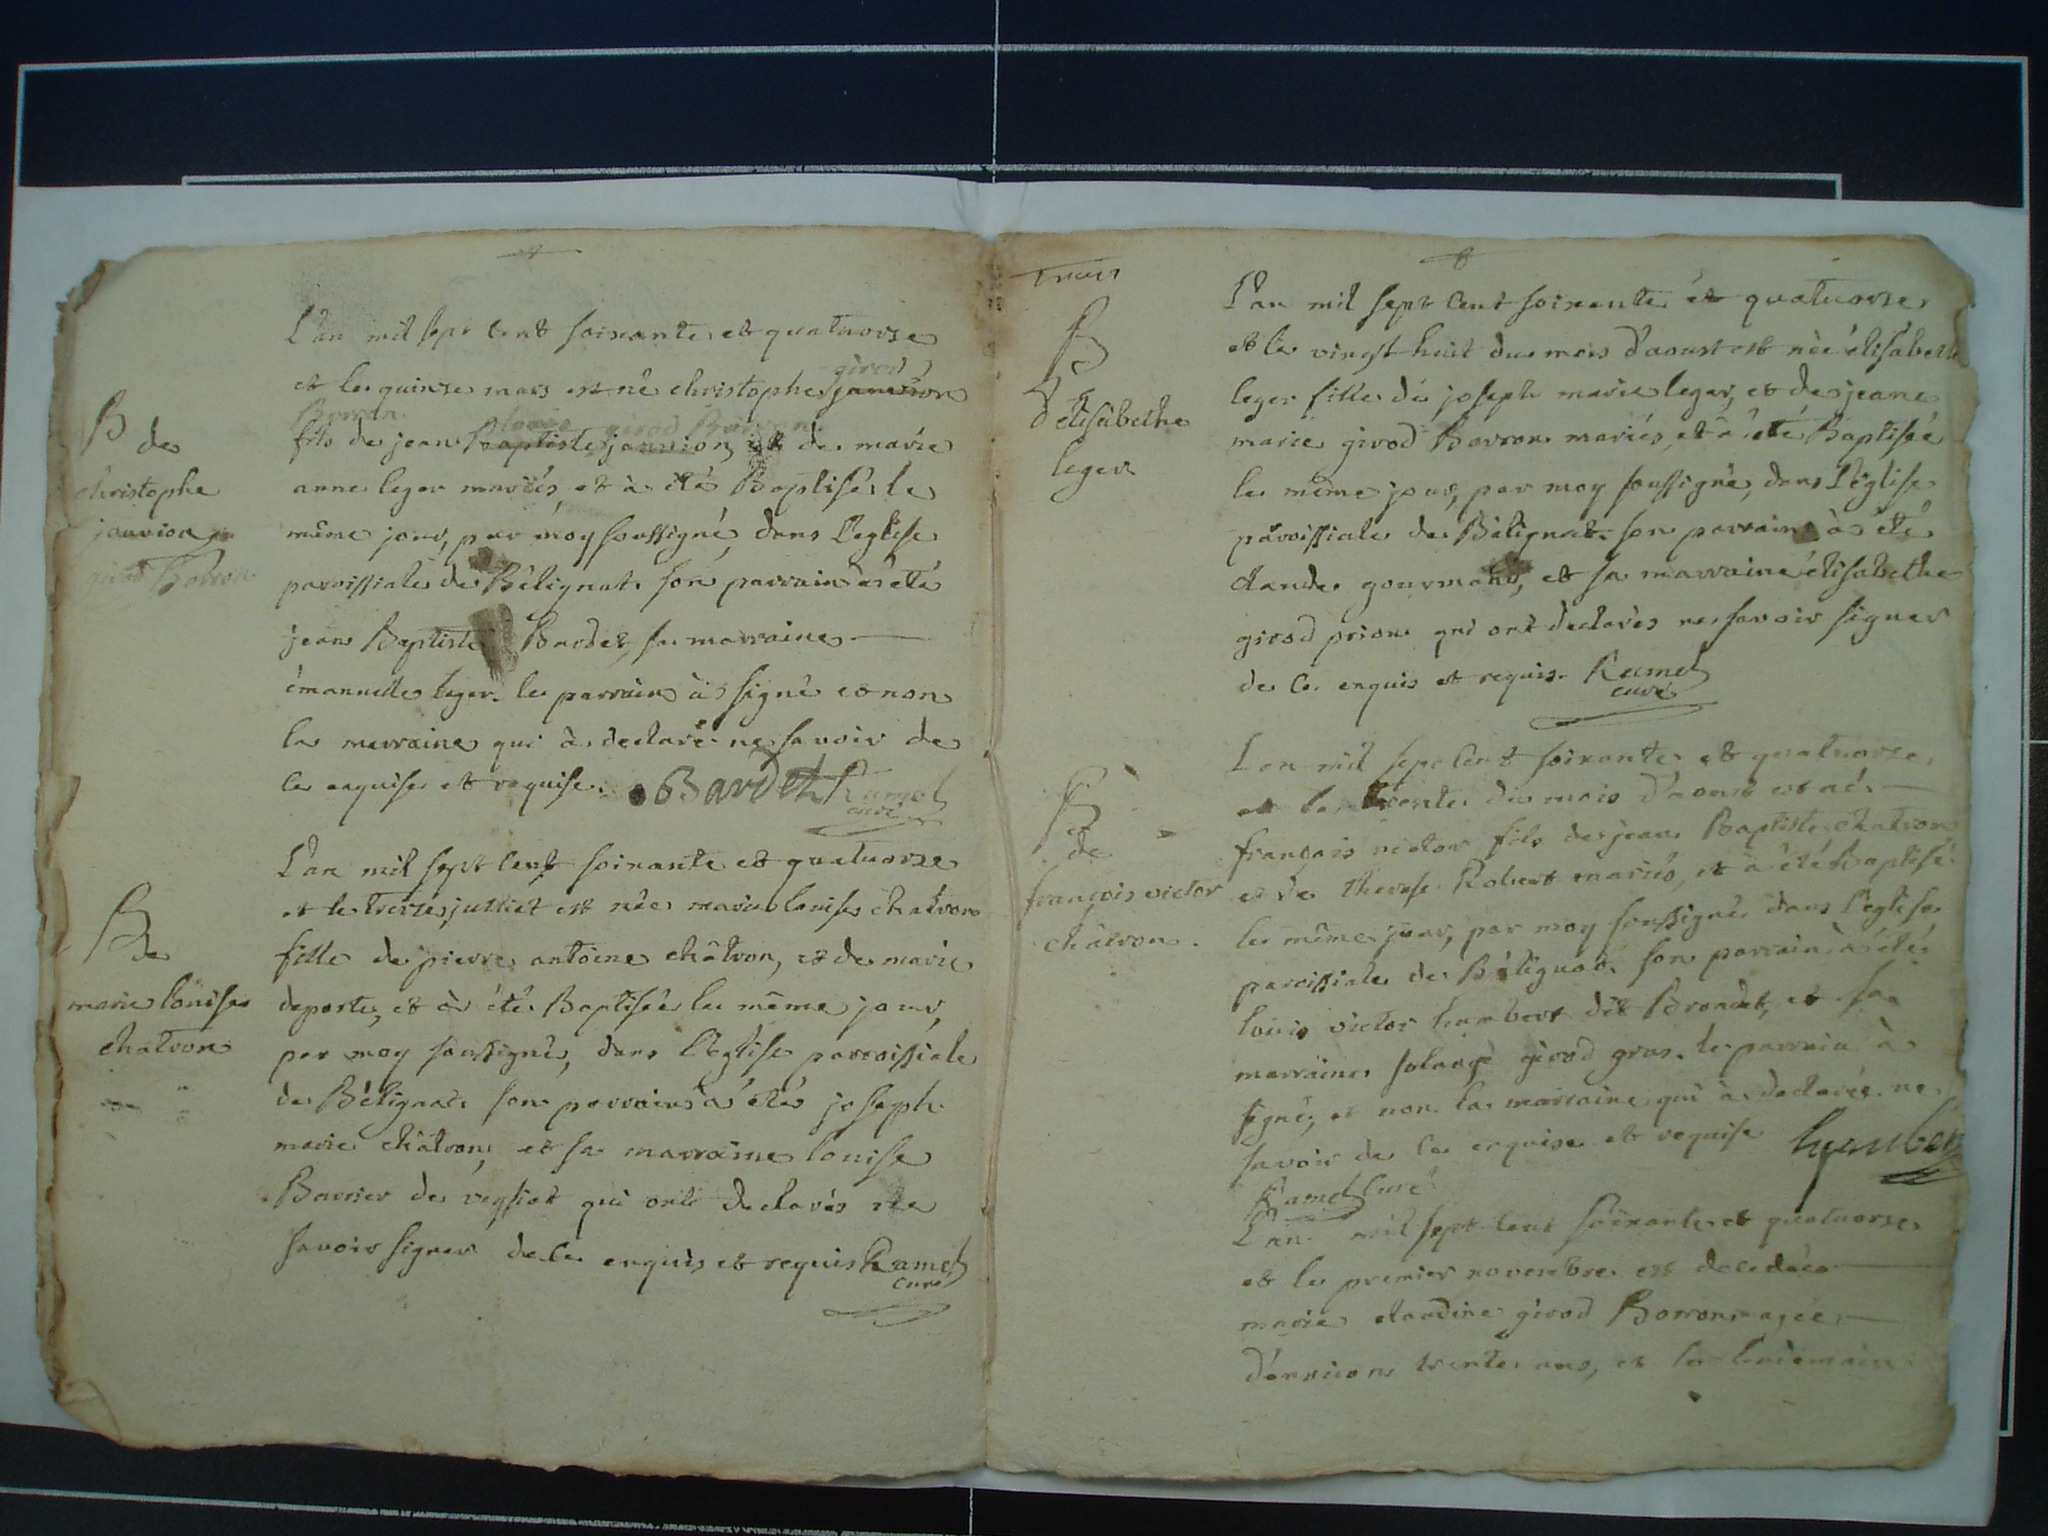 B de
christophe
janvion
girod Borron
L'an mil sept cent soixante et quatuorze
girod
et le quinze mars est né christophe janvion
Borron
girod Borron
fils de jean Baptiste janvion, et de marie
anne leger mariés, et à été Baptisé le
même jour, par moy soussigné, dans l'eglise
paroissiale de Bélignat. son parrain a été
jean Baptiste Bardet, sa marraine
émanuelle leger. le parrain à signé et non
la marraine qui à declaré ne savoir de
ce enquise et requise. Bardet Ramel
curé
B
de
marie loüise
chatron
L'an mil sept cent soixante et quatuorze
et le treize julliet est née marie louise chatron
fille de pierre antoine châtron, et de marie
deporte, et à été Baptisée le même jour,
par moy soussigné, dans l'eglise parroissiale
de Bélignat. son parrain à été joseph
marie châtron, et sa marraine louise
Barrier de veysiat qui ont declarés ne
savoir signer de ce enquis et requis Ramel
curé
trois
B
d'elisabethe
leger
L'an mil sept cent soixante et quatuorze
et le vingt huit du mois d'aoust est née élisabethe
leger fille de joseph marie leger, et de jeane
marie girod Borron mariés, et à été Baptisée
le même jour, par moy soussigné, dans l'église
paroissiale de Bélignat. son parrain à été
claude gourmand, et sa marraine élisabethe
girod prion qui ont declarés ne savoir signer
de ce enquis et requis. Ramel
curé
B
de
françois victor
châtron.
L'an mil sept cent soixante et quatuorze
et le trente du mois d'aoust est né
françois victor fils de jean Baptiste chatron
et de therese Robert mariés, et à été Baptisé
le même jour, par moy soussigné dans l'eglise
paroissiale de Bélignat. son parrain à été
loüis victor humbert dit Brondet, et sa
marraine solange girod gras. le parrain à
signé, et non la marraine qui à declarée ne
savoir de ce enquise et requise humbert
Ramel curé
L'an mil sept cent soixante et quatuorze
et le premier novembre est decedée
marie claudine girod Borron agée
d'environ trente ans, et le lendemain